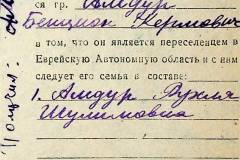 ся гр. Амдур
Бенцион Кермович
в том, что он является переселенцем в
Еврейскую Автономную область и с ним
следует его семья в составе:
1. Амдур Рухля
Шулимовна